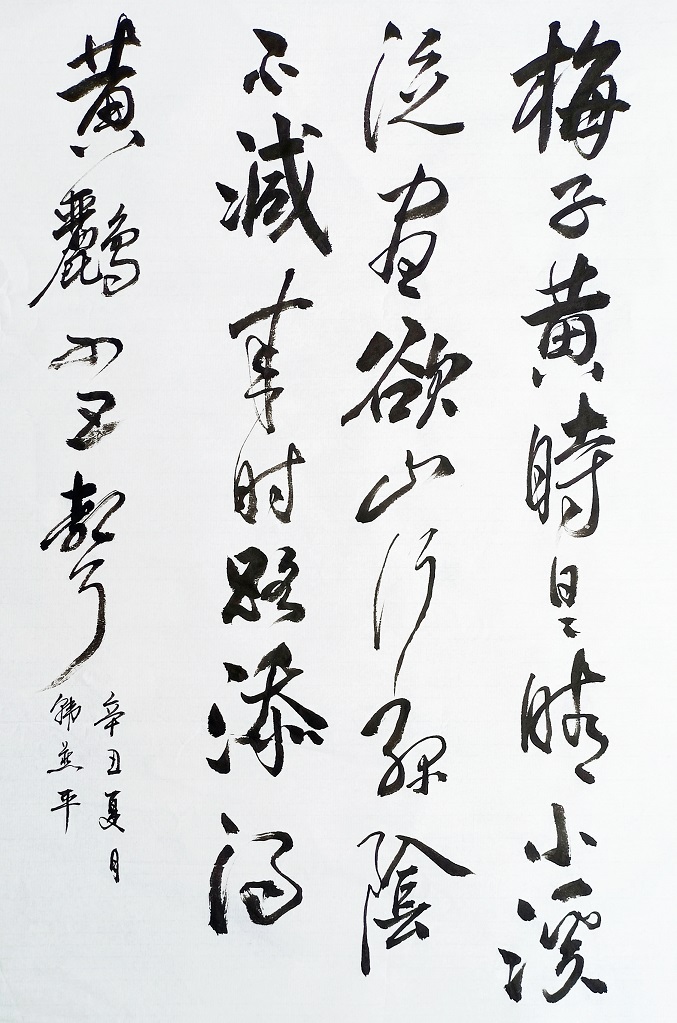 梅子黄時日日晴小溪
泛盡欲山行綠陰
不減来时路添得
黄鸝四五聲
辛丑夏月
韓燕平